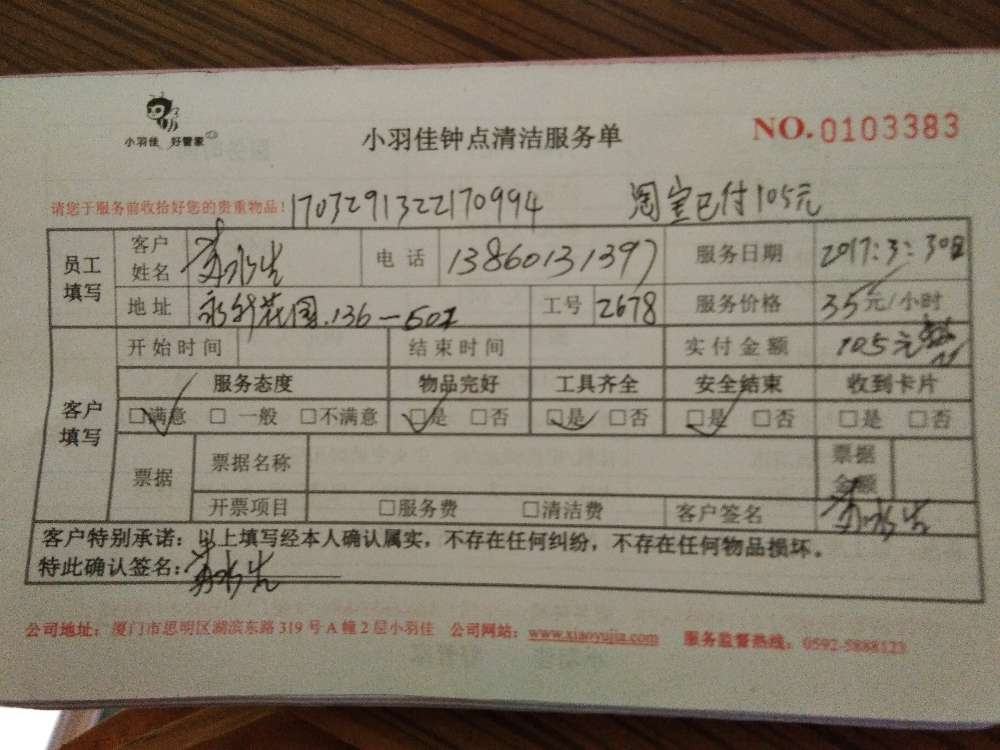 小羽佳 好管家
小羽佳钟点清洁服务单
NO.0103383
请您于服务前收拾好您的贵重物品！ 1703291322170994 淘宝已付105元
员工填写 客户姓名 电话 13860131397 服务日期 2017:3:30日
地址 花园.136-502 工号 2678 服务价格 35元/小时
客户填写 开始时间 结束时间 实付金额 105元
服务态度 物品完好 工具齐全 安全结束 收到卡片
□满意 □一般 □不满意 □是 □否 □是 □否 □是 □否 □是 □否
票据 票据名称 票据金额
开票项目 □服务费 □清洁费 客户签名
客户特别承诺：以上填写经本人确认属实，不存在任何纠纷，不存在任何物品损坏。
特此确认签名：
公司地址：厦门市思明区湖滨东路319号A幢2层小羽佳 公司网站：www.xiaoyujia.com 服务监督热线：0592-5888123